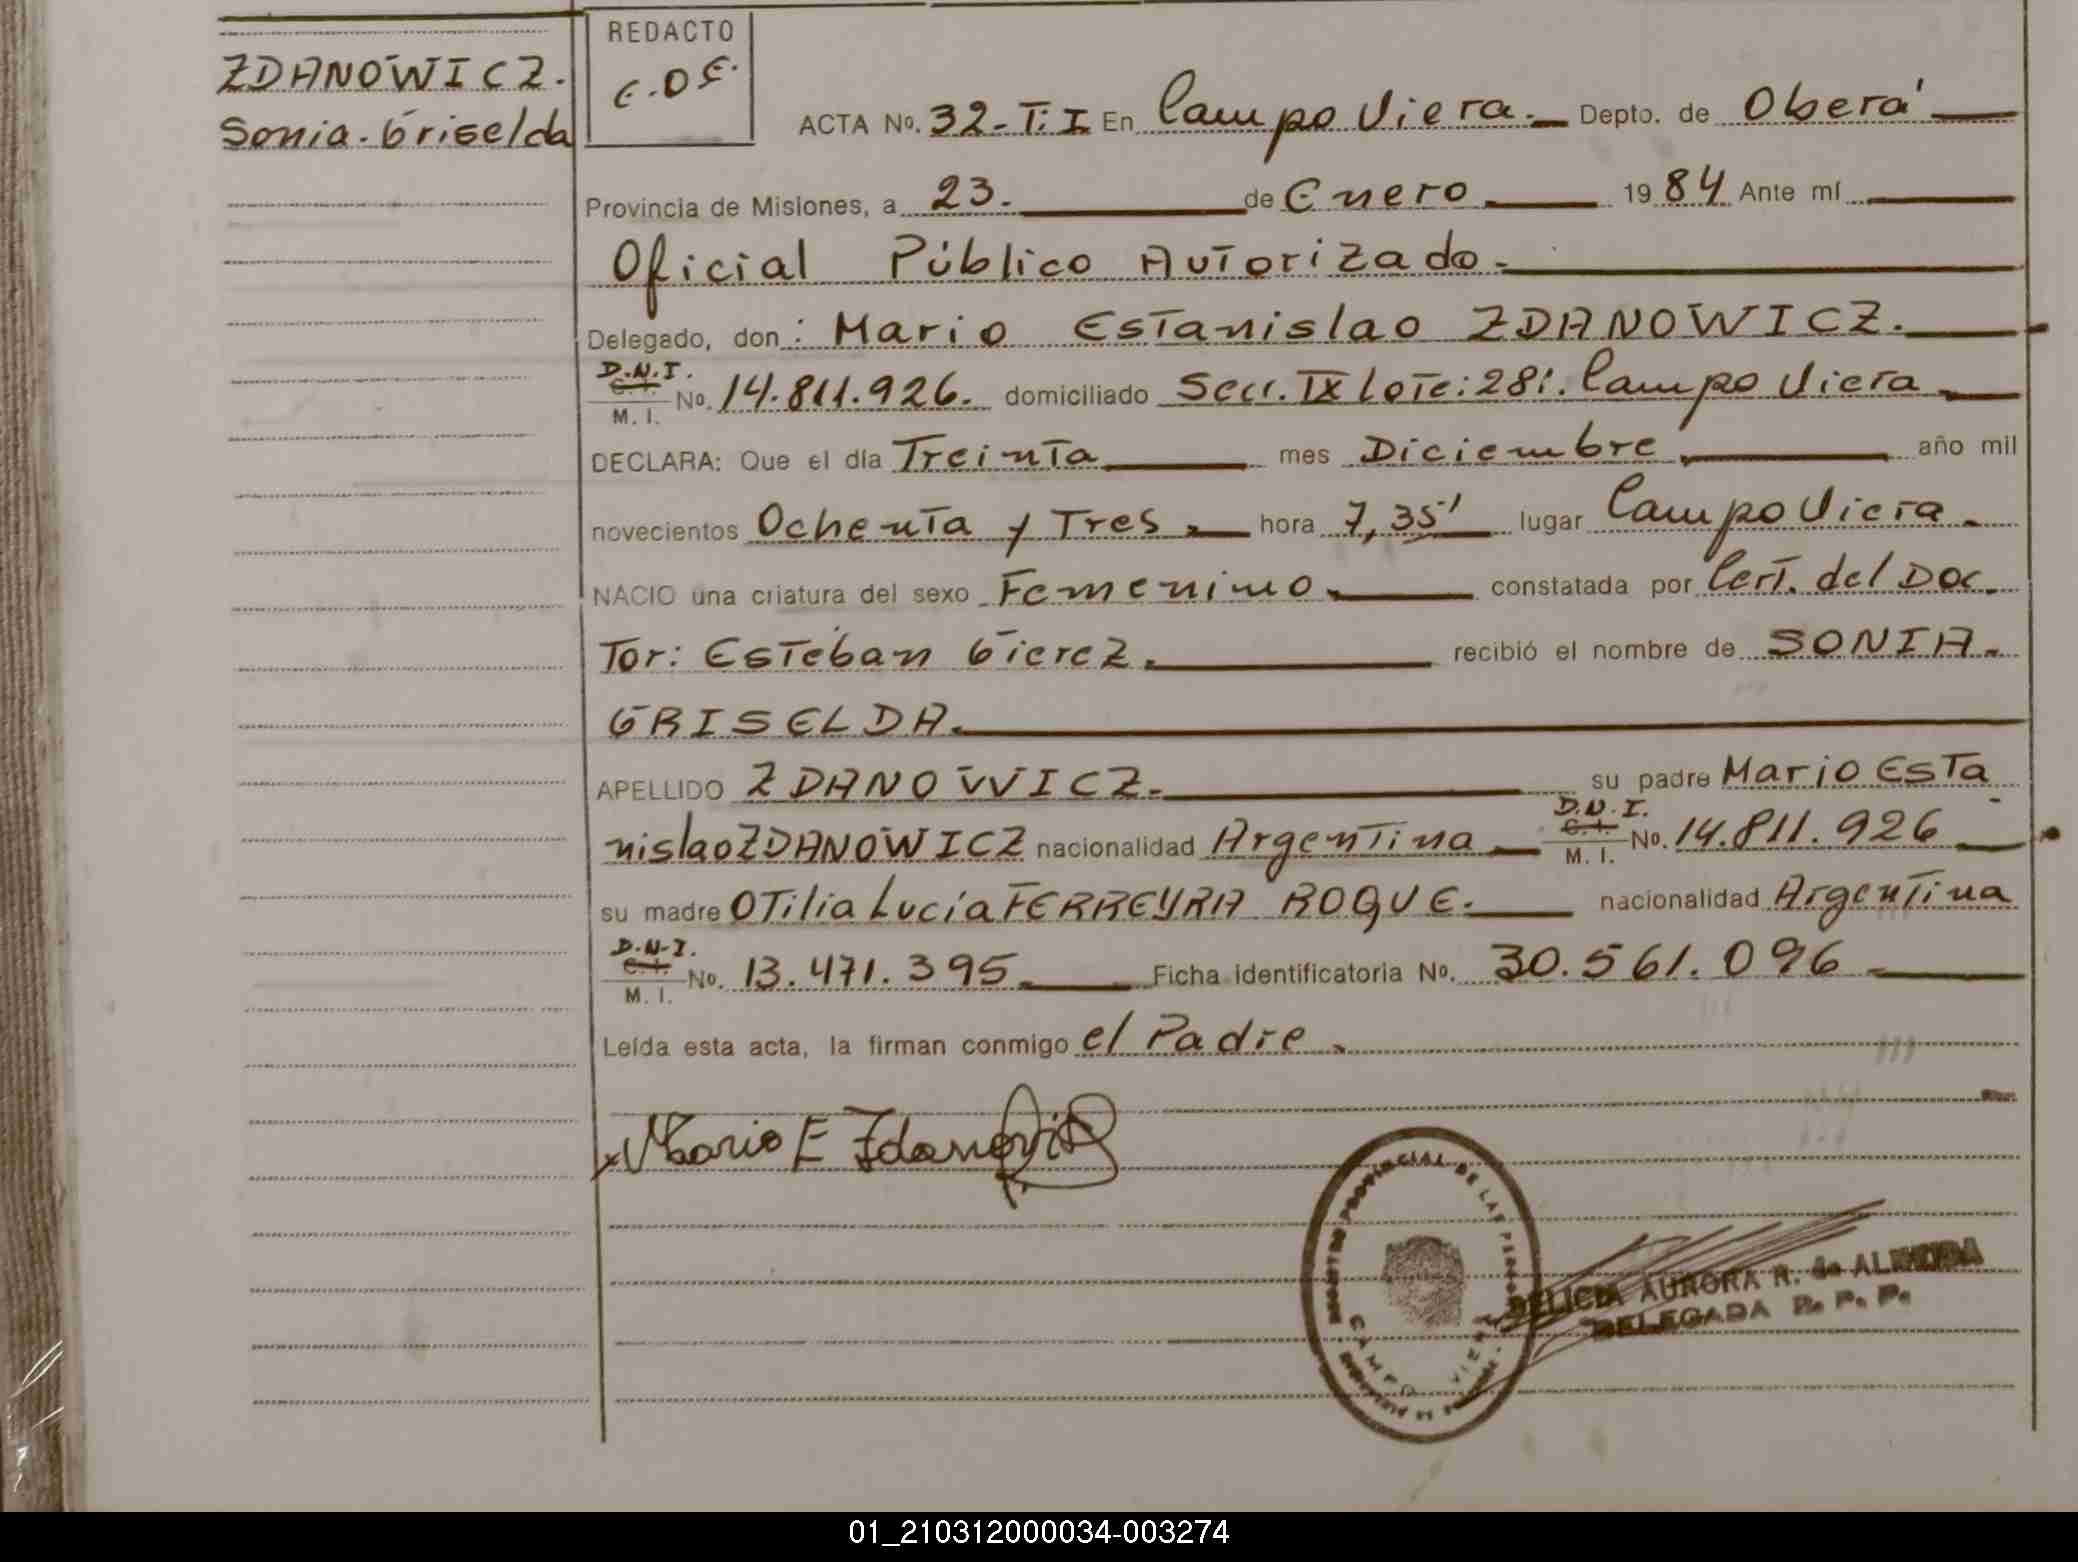 ZDANOWICZ.
Sonia. Griselda
REDACTO
E.D.E.
ACTA No. 32-T.I En Campo Viera. Depto. de Oberá
Provincia de Misiones, a 23. de Enero 1984 Ante mí
Oficial Público Autorizado.
Delegado, don: Mario Estanislao ZDANOWICZ.
D.N.I.
C.I.
M. I. No. 14.811.926. domiciliado Secc. IX Lote: 281. Campo Viera
DECLARA: Que el día Treinta mes Diciembre año mil
novecientos Ochenta y Tres. hora 7,35' lugar Campo Viera.
NACIO una criatura del sexo Femenino. constatada por Cert. del Doc.
Tor: Esteban Gierez. recibió el nombre de SONIA.
GRISELDA.
APELLIDO ZDANOWICZ. su padre Mario Esta
nislao ZDANOWICZ nacionalidad Argentina D.N.I. C.I. M. I. No. 14.811.926
su madre Otilia Lucía FERREYRA ROQUE. nacionalidad Argentina
D.N.I.
C.I.
M. I. No. 13.471.395 Ficha identificatoria No. 30.561.096
Leída esta acta, la firman conmigo el Padre.
Mario E Zdanovicz
REGISTRO PROVINCIAL DE LAS PERSONAS
CAMPO VIERA
DELICIA AURORA R. de ALMEIDA
DELEGADA R. P. P.
01_210312000034-003274